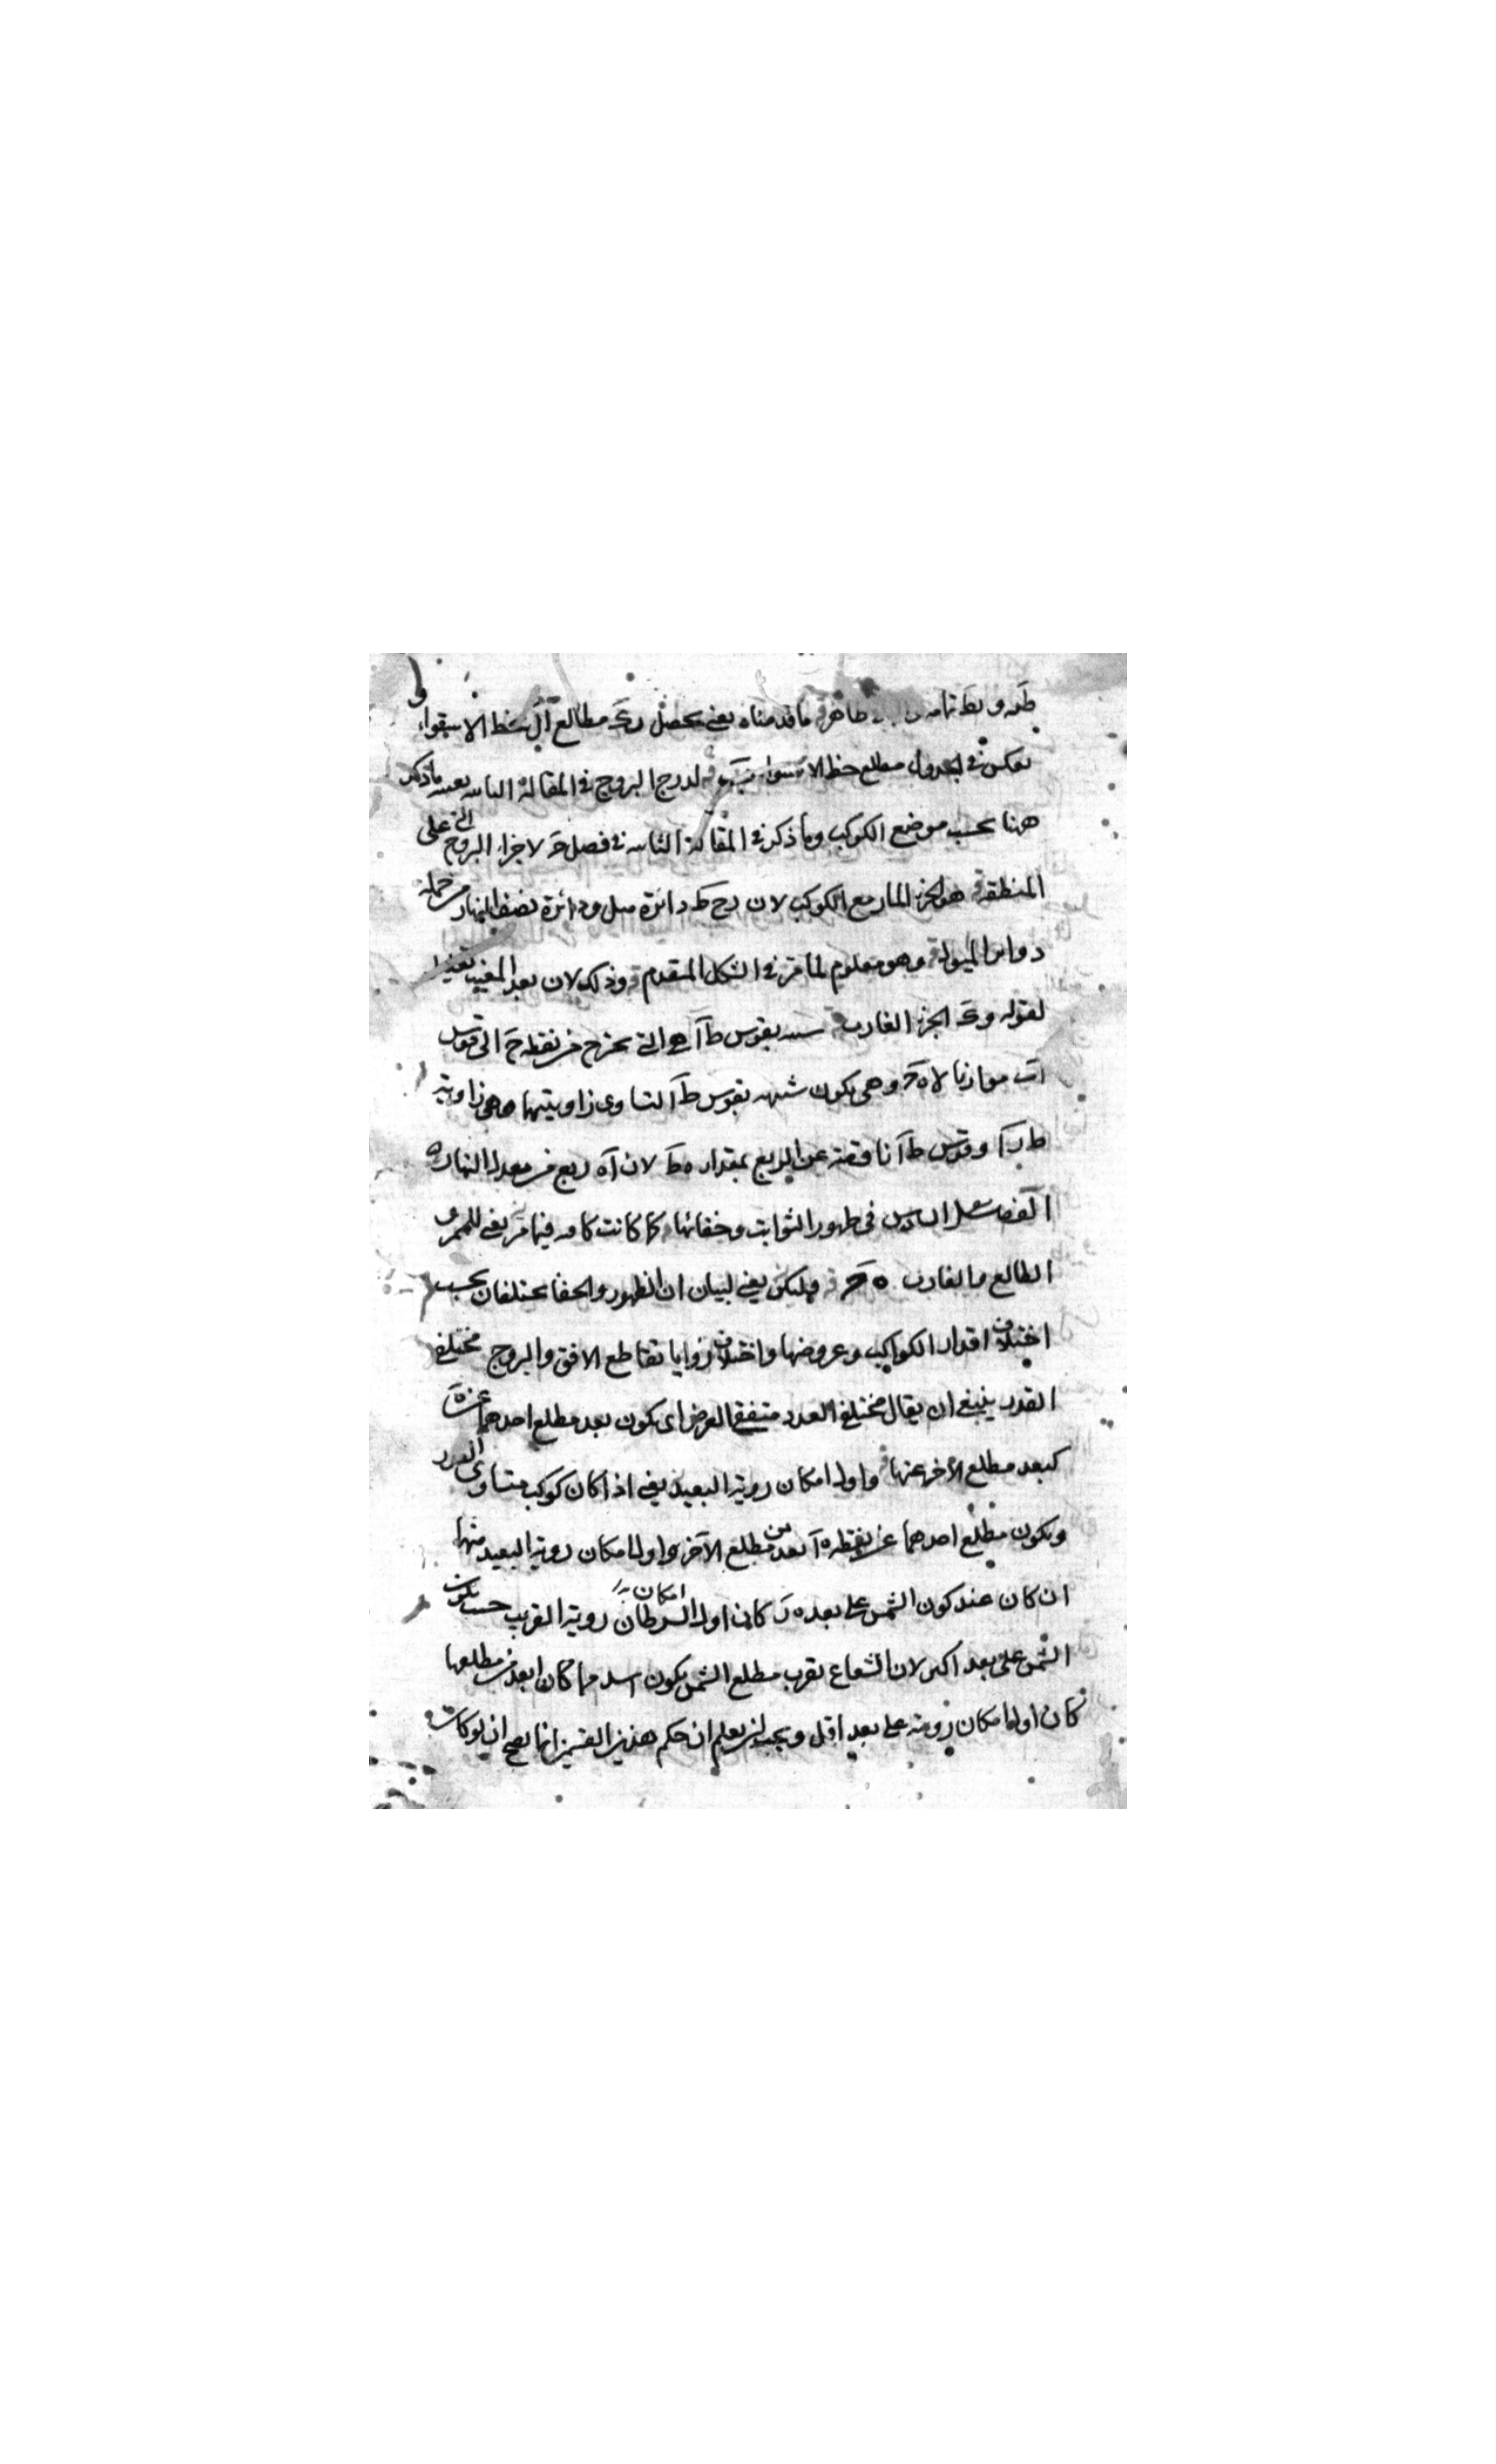 طه و بط تامه ظاهر ما قدمناه يعنى يحصل رع مطالع ال بخط الاستواء و
يعكس فى جدول مطالع خط الاستواء لدرج البروج فى المقالة الثانيه بعينه ما ذكر
هنا بحسب موضع الكوكب وما ذكر فى المقالة الثانيه فى فصل ح لاجزاء البروج التى على
المنطقة هو الجزء المار مع الكوكب لان رح ط دائرة ميل ودائرة نصف النهار من جملة
دوائر الميول وهو معلوم لما مر فى الشكل المقدم وذلك لان بعد المغيب تغير
لقوله وع الجزء الغارب بقوس ط آ التى تخرج من نقطة ح الى قوس
اب موازيا لا ه ح وهى يكون شبيهه بقوس ط آ لتساوى زاويتيهما وهى زاوية
ط ر آ وقوس ط آ ناقصة عن الربع بمقدار ه ط لان آ ه ربع من معدل النهار ه
الفصل السادس فى ظهور الثوابت وخفائها كما كانت فيما مر يعنى للممر و
الطالع والغارب ه ح وليكن يعنى لبيان ان الظهور والخفا يختلفان بحسب
اختلاف اقدار الكواكب وعروضها واختلاف زوايا تقاطع الافق والبروج مختلفى
القدر ينبغى ان يقال مختلفى العدد متفقى العرض اى يكون بعد مطلع احدهما عن ه
كبعد مطلع الآخر عنها واول امكان روية البعيد يعنى اذا كان كوكب متساوى القدر
ويكون مطلع احدهما عن نقطة ه ابعد من مطلع الآخر واول امكان روية البعيد منهما
ان كان عند كون الشمس على بعد ه ر كان اول امكان روية القريب حين يكون
الشمس على بعد اكبر لان الشعاع بقرب مطلع الشمس يكون اشد فما كان ابعد من مطلعها
كان اول امكان رويته على بعد اقل ويجب ان يعلم ان حكم هذين القسمين انما يصح ان لو كانت